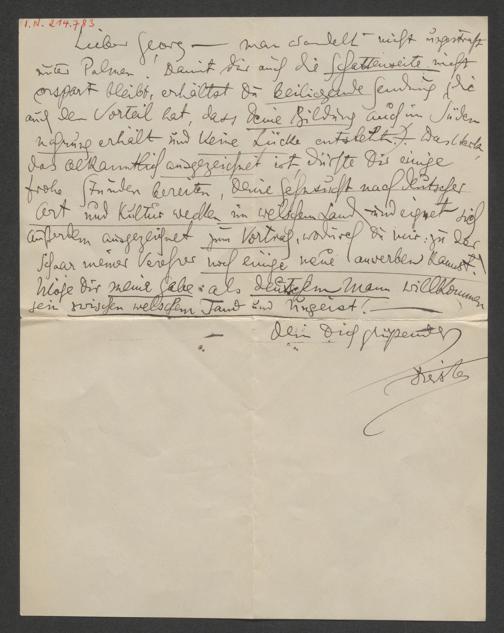 I.N. 214.783
Lieber Georg — man wandelt nicht ungestraft
unter Palmen! Damit Dir auch die Schattenseite nicht
erspart bleibt, erhältst Du beiliegende Sendung (die
auch den Vorteil hat, dass Deine Bildung auch im Süden
nahrung erhält und keine Lücke entsteht.) Das Werk,
das bekanntlich ausgezeichnet ist, dürfte Dir einige
frohe Stunden bereiten, Deine Sehnsucht nach deutscher
Art und Kultur wecken im welschen Land und eignet sich
außerdem ausgezeichnet zum Vortrag, wodurch du mir zu der
Schaar meiner Verehrer noch einige neue anwerben kannst!
Möge Dir meine Gabe als deutschem Mann willkommen
sein zwischen welschem Tand und Ungeist! —
Dein Dich grüßender